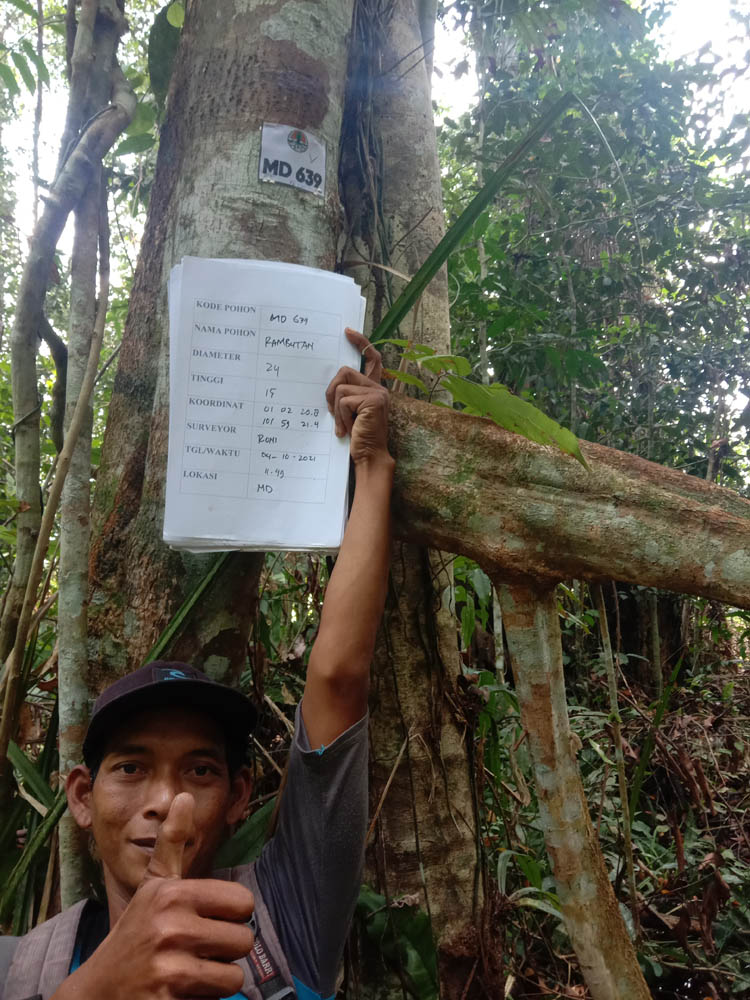 MD 639
KODE POHON MD 639
NAMA POHON RAMBUTAN
DIAMETER 24
TINGGI 15
KOORDINAT 01 02 20.8
101 59 21.4
SURVEYOR ROMI
TGL/WAKTU 04-10-2021
LOKASI 11.49
MD